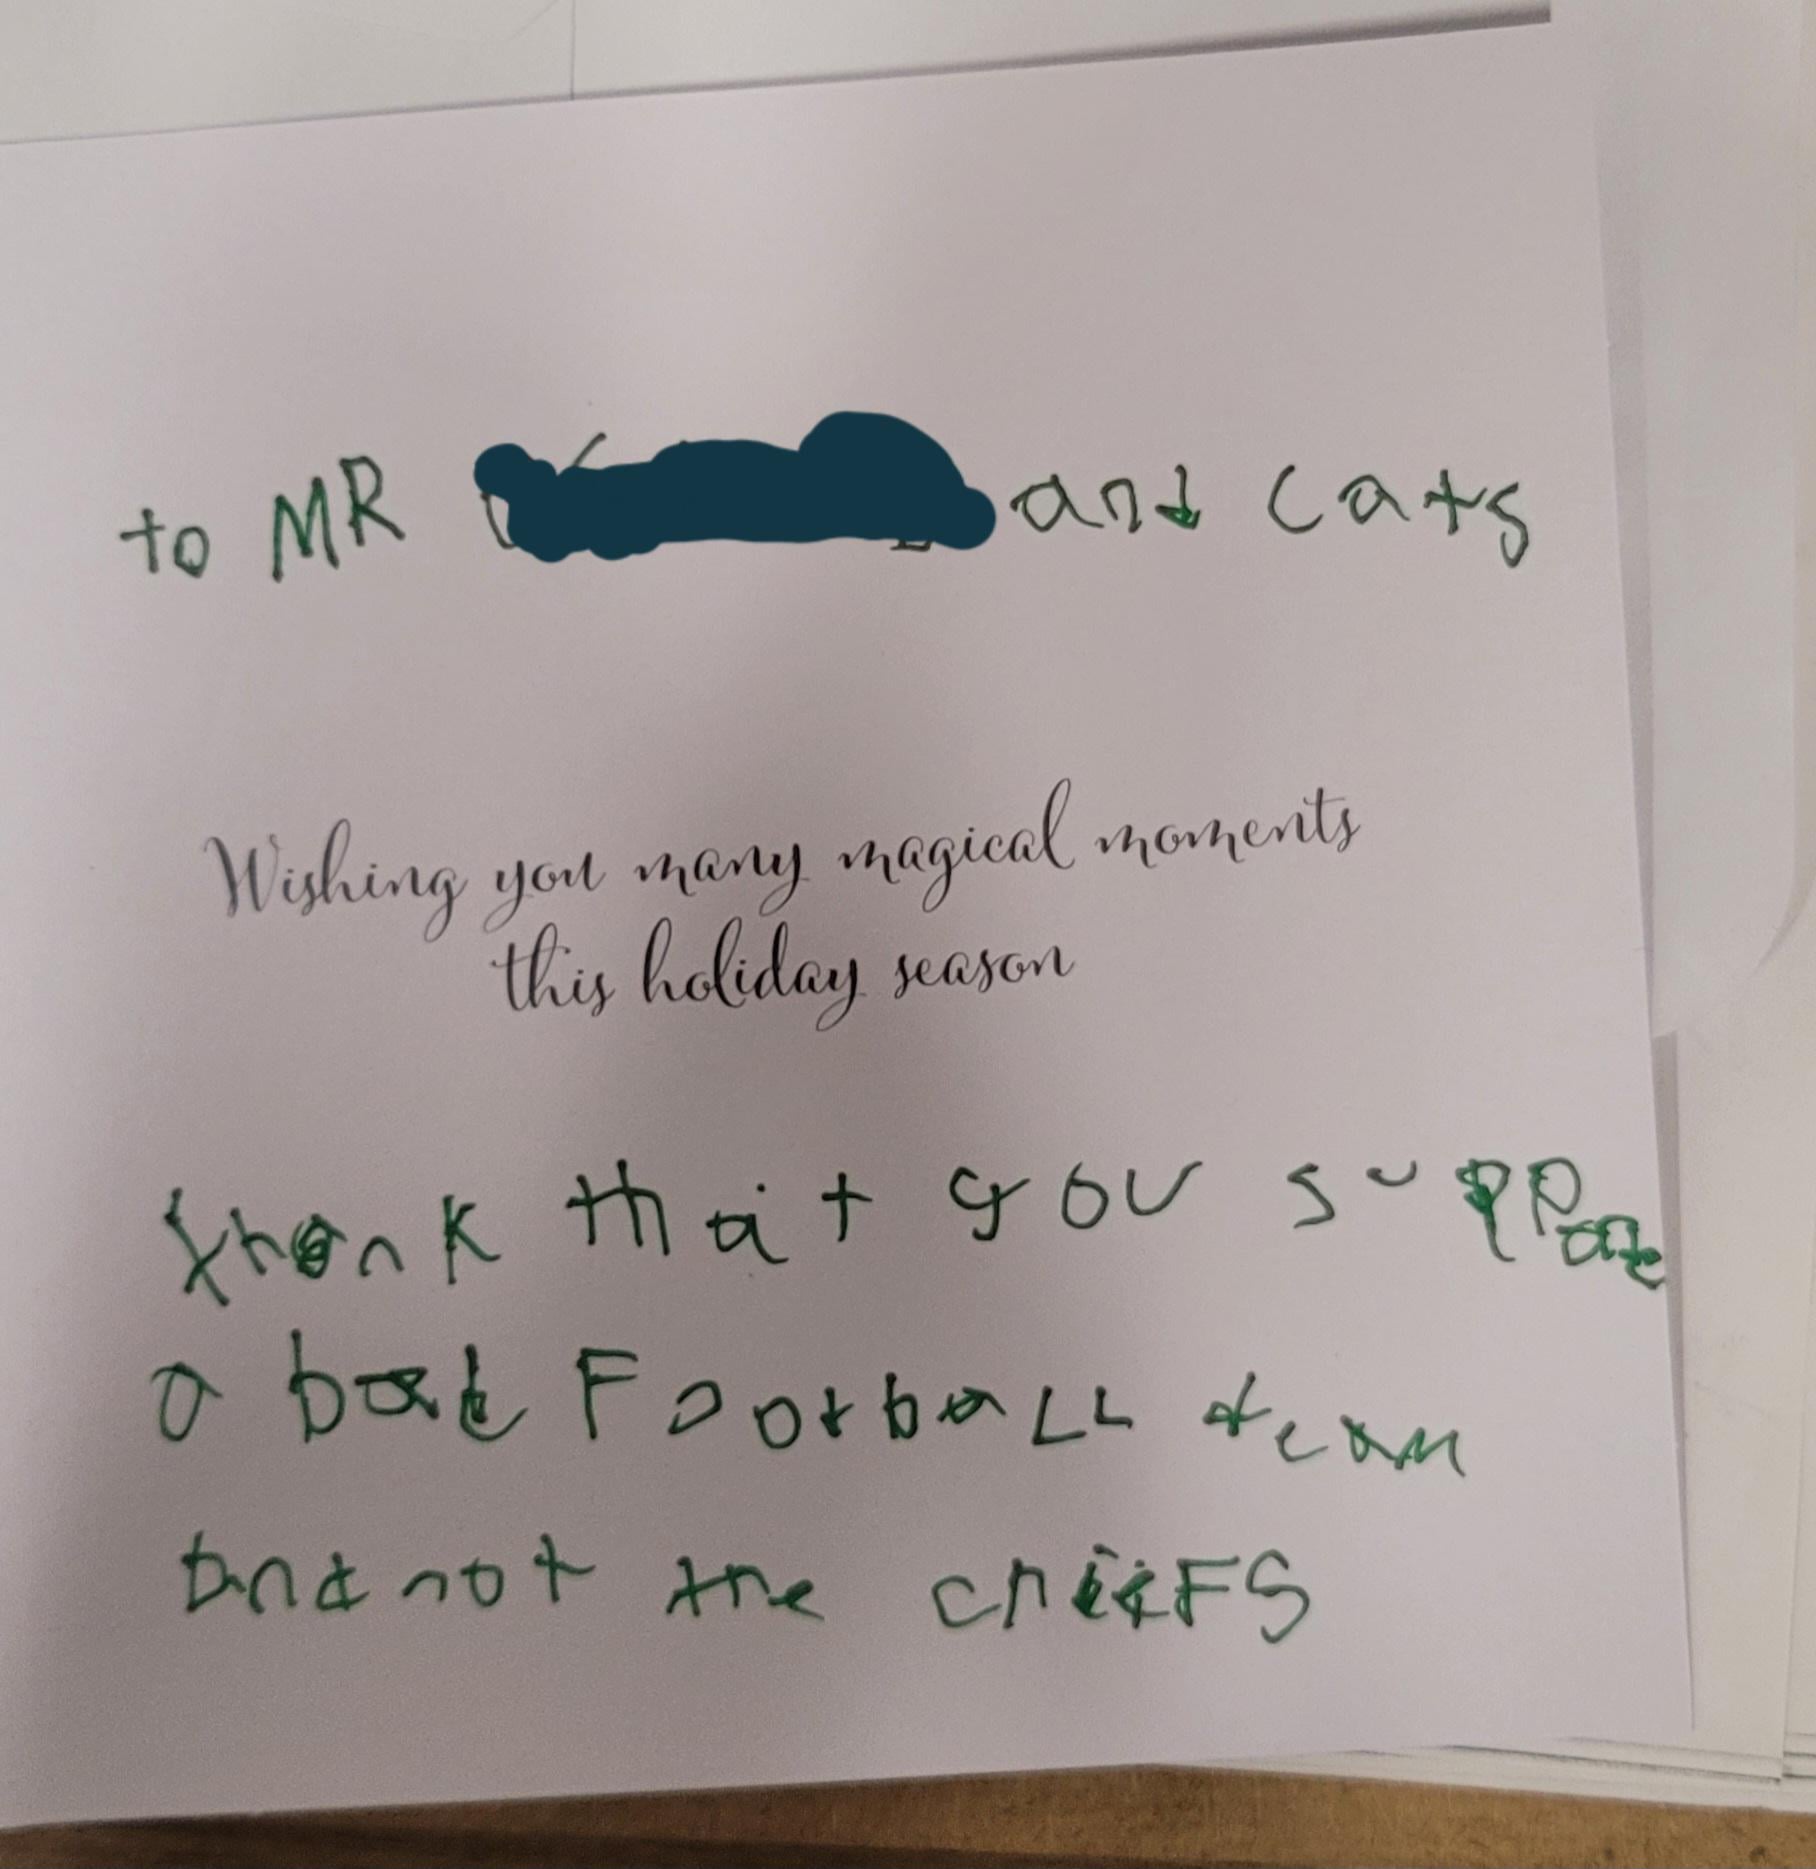 to MR and cats
Wishing you many magical moments
this holiday season
thank that you supporte
a bad FootbaLL team
and not the chieFS